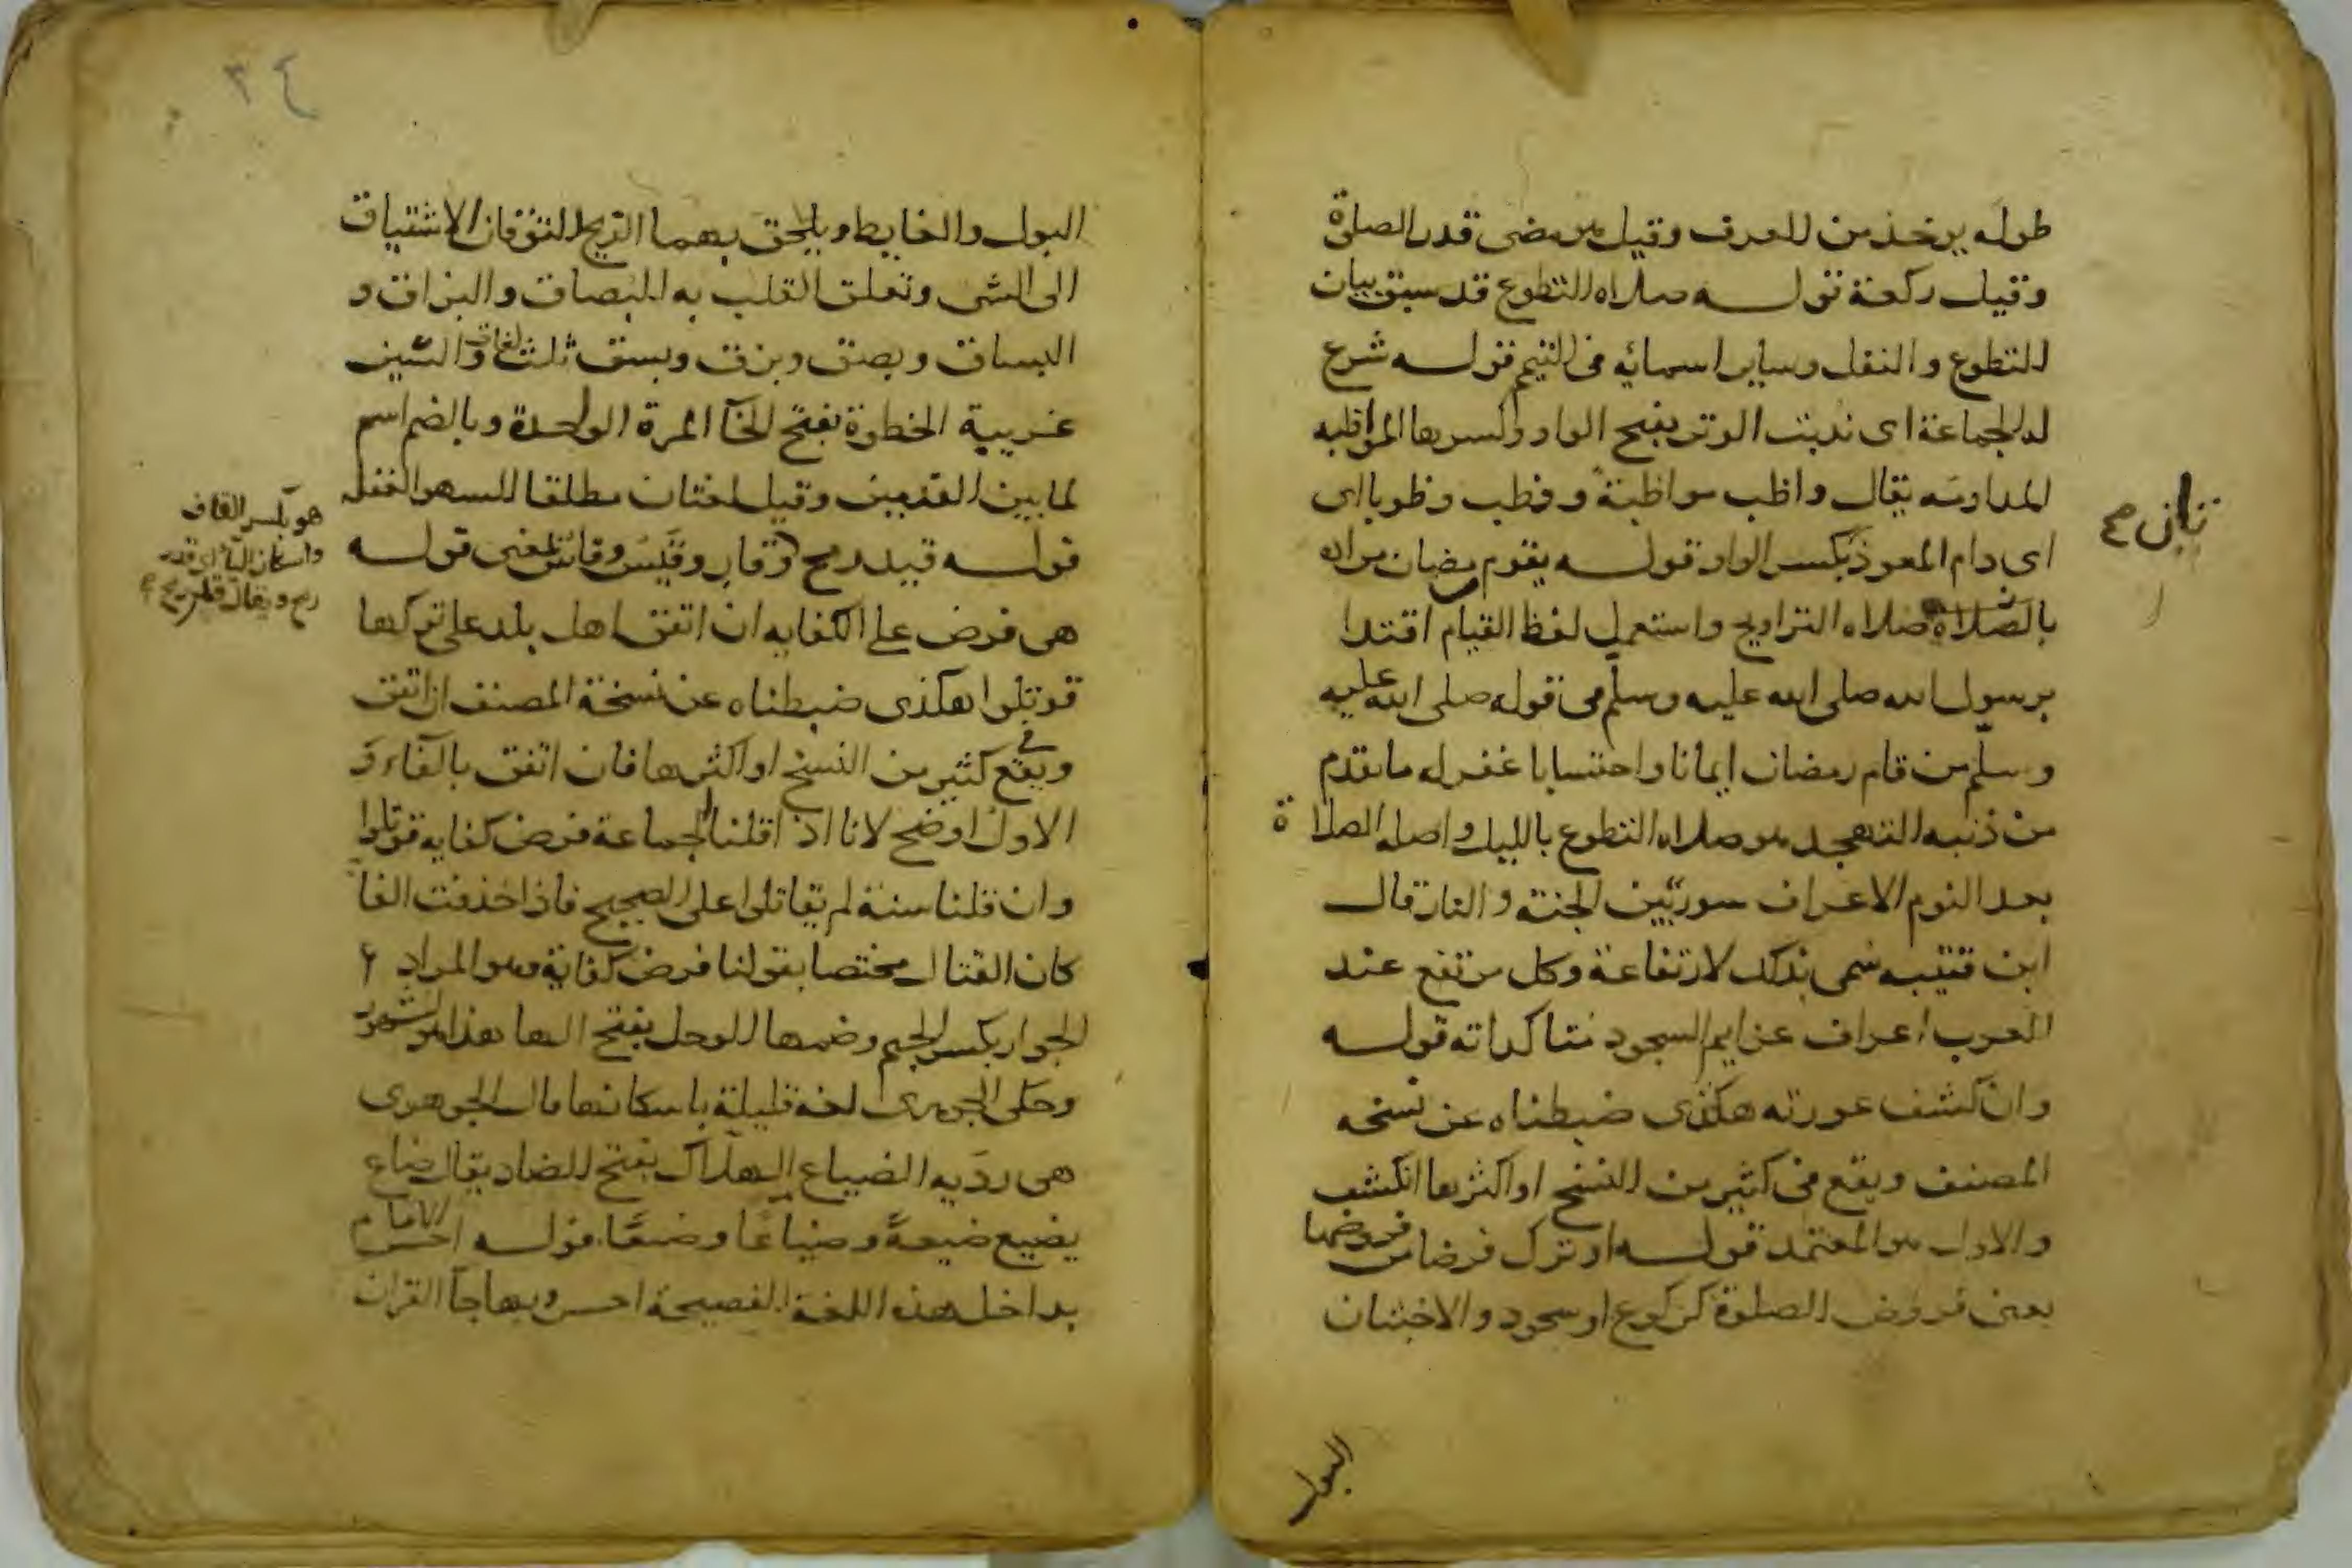 طوله يوخذ من العرف وقيل من مضى قدر الصلوة
وقيل ركعة قوله صلاه التطوع قد سبق بيان
التطوع والنفل وساير اسمائه في التيمم قوله شرع
له الجماعة اى ندبت الوتر بفتح الواو وكسرها المواظبه
المداومه يقال واظب مواظبةً ووظب وظوبا اى
اى دام المعوذ بكسر الواو قوله يقوم رمضان مراده
بالصلاة صلاه التراويح واستعمل لفظ القيام اقتدا
برسول الله صلى الله عليه وسلم في قوله صلى الله عليه
وسلم من قام رمضان ايمانا واحتسابا غفر له ما تقدم
من ذنبه التهجد هو صلاه التطوع بالليل واصله الصلاة
بعد النوم الاعراف سور بين الجنة والنار قال
ابن قتيبه سمى بذلك لارتفاعة وكل مرتفع عند
العرب اعراف عزايم السجود متاكداته قوله
وان كشف عورته هكذى ضبطناه عن نسخه
المصنف ويقع في كثير من النسخ او اكثرها انكشف
والاول هو المعتمد قوله او ترك فرضا من فروضها
يعنى فروض الصلوة كركوع او سجود والاخبثان
البول
البول والغايط ويلحق بهما الريح التوقان الاشتياق
الى الشى وتعلق القلب به البصاق والبزاق و
البساق وبصق وبزق وبسق ثلث لغات والسين
غريبة الخطوة بفتح الخآ المرة الواحدة وبالضم اسم
لما بين القدمين وقيل لغتان مطلقا السهو الغفله
قوله قيد رمح وقاب وقيس وقاس بمعنى قوله
هى فرض على الكفايه ان اتفق اهل بلد على تركها
قوتلوا هكذى ضبطناه عن نسخة المصنف ان اتفق
ويقع في كثير من النسخ او اكثرها فان اتفق بالفاء و
الاول اوضح لانا اذا قلنا الجماعة فرض كفايه قوتلوا
وان قلنا سنة لم يقاتلوا على الصحيح فاذا حذفت الفا
كان القتال مختصا بقولنا فرض كفاية وهو المراد
الجوار بكسر الجيم وضمها الوحل بفتح الها هذا هو المشهور
وحكى الجوهرى لغه قليلة باسكانها قال الجوهرى
هى رديه الضياع الهلاك بفتح الضاد يقال ضاع
يضيع ضيعةً وضياعًا وضيعًا قوله احس الامام
بداخل هذه اللغة الفصيحة احس وبها جآ القران
هو بكسر القاف
واسكان اليآ اى قدر
رمح ويقال
٣٤